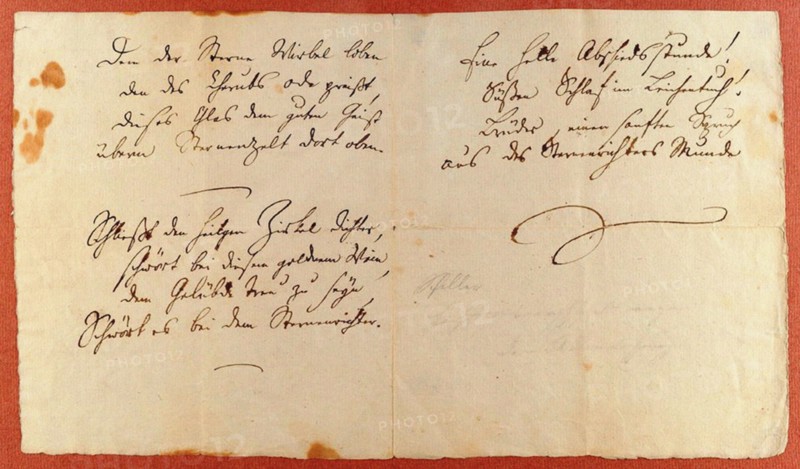 Den der Sterne Wirbel loben
den des Cherubs ode preißt,
dieses Glas dem guten Geist
überm Sternenzelt dort oben.
Schließt den heilgen Zirkel dichter,
schwört bei diesem goldnem Wein,
dem Gelübde treu zu seyn,
Schwört es bei dem Sternenrichter.
Eine helle Abschiedsstunde!
Süßen Schlaf im Leichentuch!
Brüder, einen sanften Spruch
aus des Sternenrichters Munde
Schiller
PHOTO12